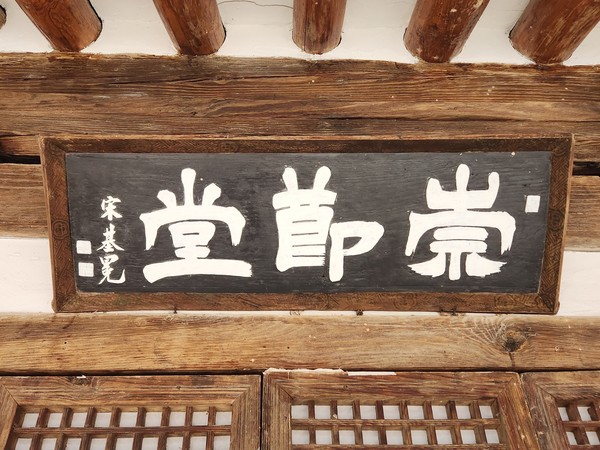 崇節堂
宋基冕